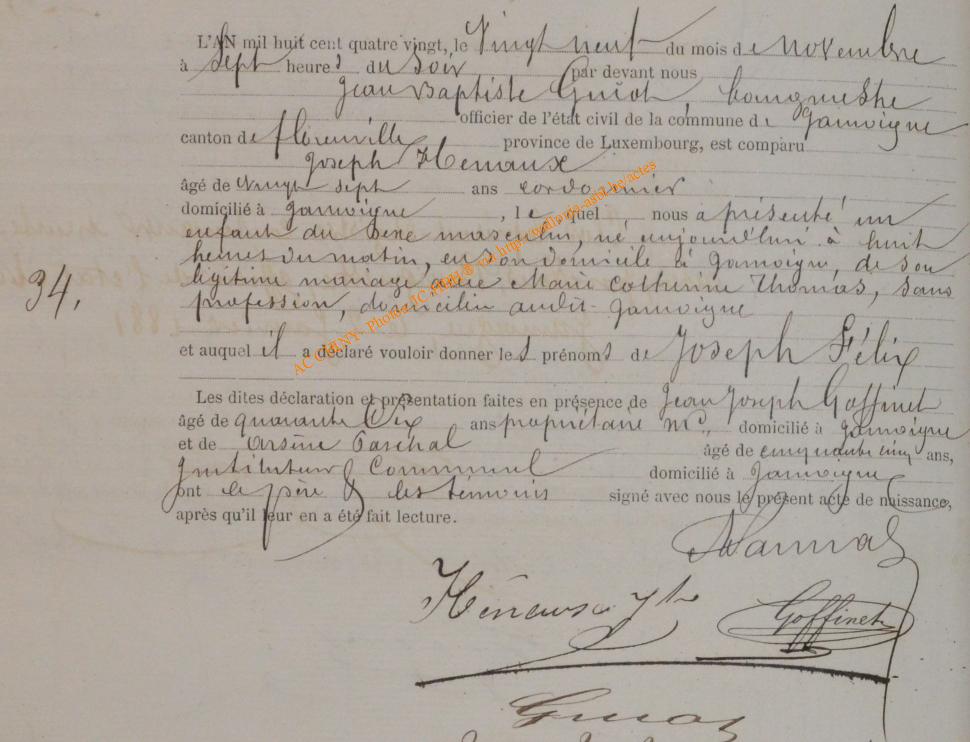 L'AN mil huit cent quatre vingt, le Vingt neuf du mois de novembre
à Sept heures du Soir par devant nous
Jean Baptiste Guiot, Bourgmestre
officier de l'état civil de la commune de Jamoigne
canton de florenville province de Luxembourg, est comparu
Joseph Henaux
âgé de Vingt sept ans cordonnier
domicilié à Jamoigne, lequel nous a présenté un
enfant du sexe masculin, né aujourd'hui à huit
heures du matin, en son domicile à Jamoigne, de son
légitime mariage avec Marie Catherine Thomas, sans
profession, domiciliée audit Jamoigne
34.
et auquel il a déclaré vouloir donner les prénoms de Joseph Félix
Les dites déclaration et présentation faites en présence de Jean Joseph Goffinet
âgé de quarante Six ans propriétaire domicilié à Jamoigne
et de Arsène âgé de cinquante cinq ans,
Instituteur Communal domicilié à Jamoigne
ont le père & les témoins signé avec nous le présent acte de naissance,
après qu'il leur en a été fait lecture.
Goffinet
AC CHINY- Photos